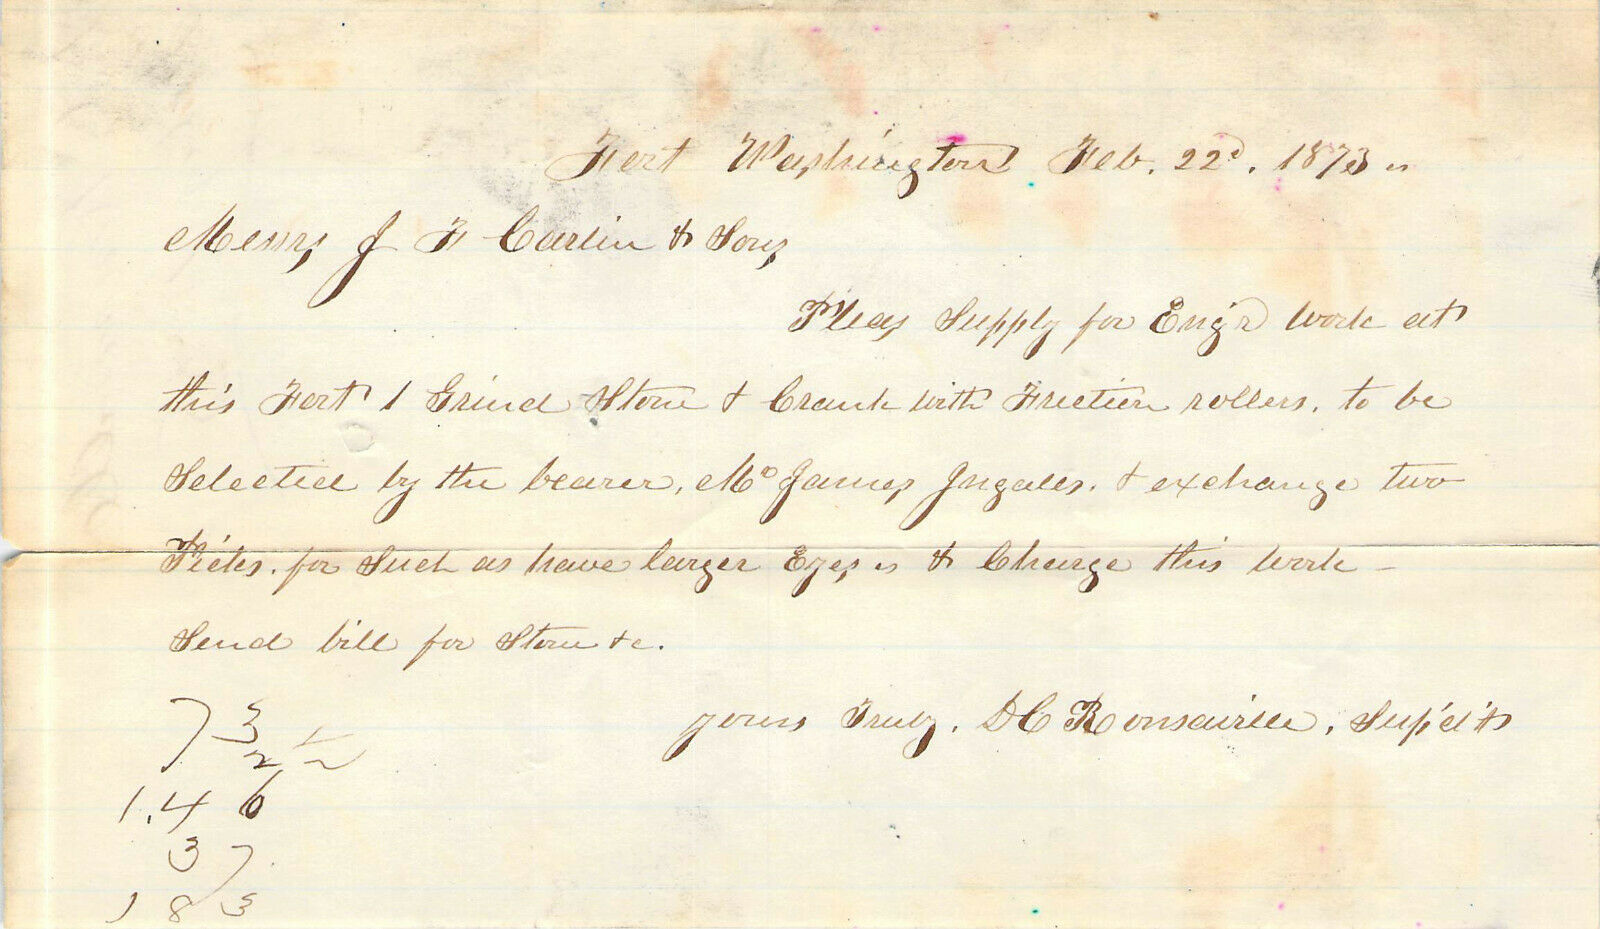 Fort Washington Feb. 22d. 1873 "
Messrs J F Carlin & Sons,
Pleas Supply for Eng'r work at
this Fort 1 Grind Stone & Crank with Friction rollers. to be
Selected by the bearer, Mr James Ingalls. & exchange two
Picks. for Such as have larger Eyes " & Charge this work -
Send bill for Stone &c.
yours Truly, D C Ronsaville, Sup'd't
73
2 1/2
1.46
37
183